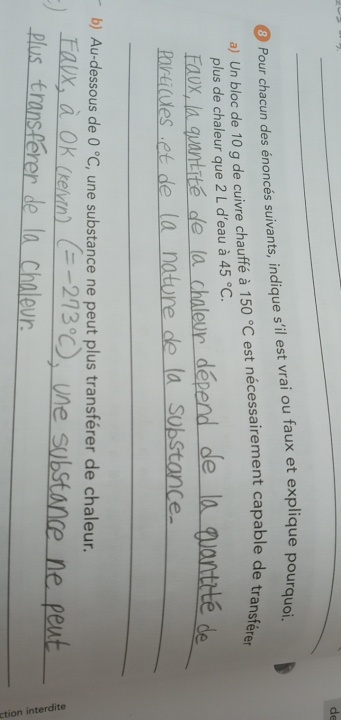 8 Pour chacun des énoncés suivants, indique s'il est vrai ou faux et explique pourquoi.
a) Un bloc de 10 g de cuivre chauffé à 150 °C est nécessairement capable de transférer
plus de chaleur que 2 L d'eau à 45 °C.
Faux, la quantité de la chaleur dépend de la quantité de
particules et de la nature de la substance.
b) Au-dessous de 0 °C, une substance ne peut plus transférer de chaleur.
Faux, à 0K (kelvin) (=-273°C), une substance ne peut
plus transférer de la chaleur.
ction interdite